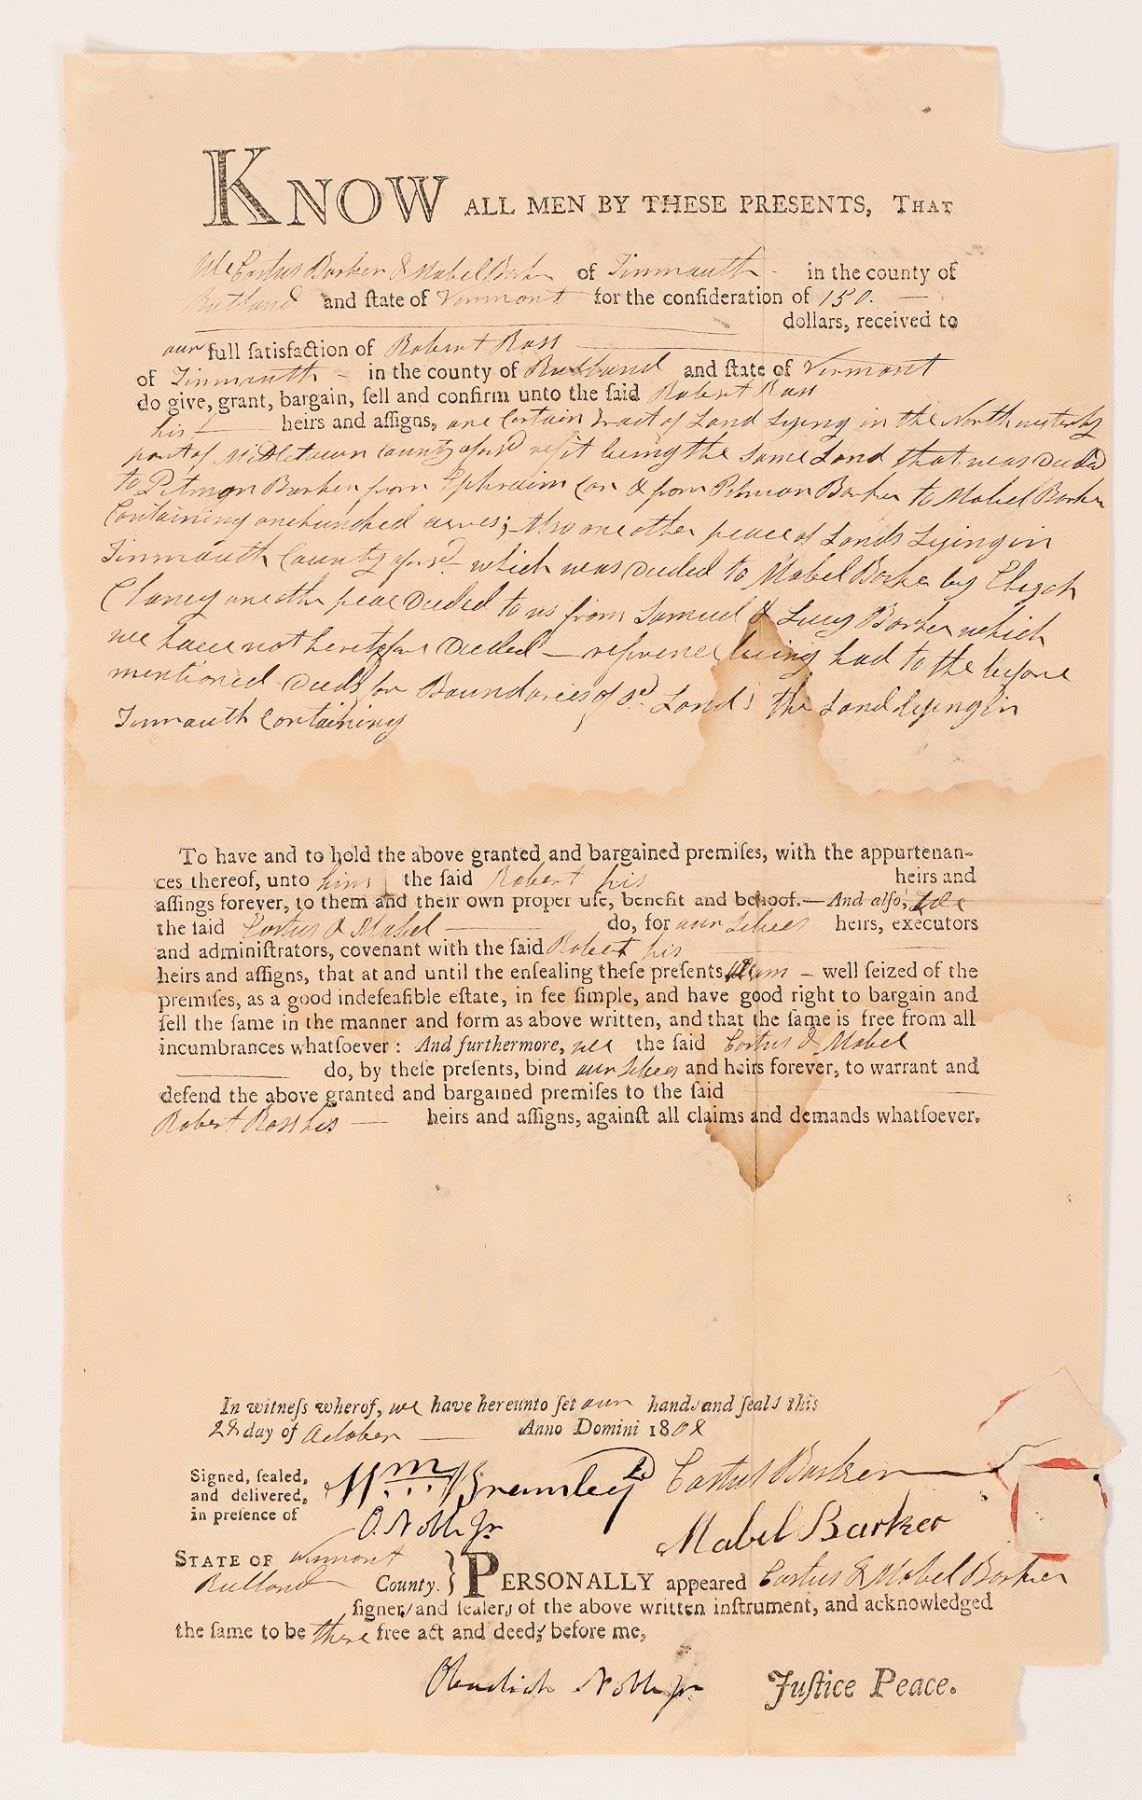 KNOW ALL MEN BY THESE PRESENTS, THAT
We Cortus Barker & Mabel Barker of Tinmouth in the county of
Rutland and ſtate of Vermont for the conſideration of 150.
dollars, received to
our full ſatisfaction of Robert Ross
of Tinmouth in the county of Rutland and ſtate of Vermont
do give, grant, bargain, ſell and confirm unto the ſaid Robert Ross
his heirs and aſſigns, one Certain tract of Land Lying in the North westerly
part of Middletown County afors.d it being the Same Land that was Deeded
to Pitman Barker from Ephraim & from Pitman Barker to Mabel Barker
Containing one hundred acres; Also one other peace of Lands Lying in
Tinmouth County afors.d which was Deeded to Mabel Barker by Elijah
one other peac Deeded to us from Samuel & Lucy Barker which
we have not heretofore Deeded – refrence being had to the before
mentioned Deeds for Boundaries of s.d Lands the Land lying in
Tinmouth Containing
To have and to hold the above granted and bargained premiſes, with the appurtenan-
ces thereof, unto him the ſaid Robert his heirs and
aſſings forever, to them and their own proper uſe, benefit and behoof.—And alſo, We
the ſaid Cortus & Mabel do, for our Selves heirs, executors
and adminiſtrators, covenant with the ſaid Robert his
heirs and aſſigns, that at and until the enſealing theſe preſents, – well ſeized of the
premiſes, as a good indefeaſible eſtate, in fee ſimple, and have good right to bargain and
ſell the ſame in the manner and form as above written, and that the ſame is free from all
incumbrances whatſoever: And furthermore, we the ſaid Cortus & Mabel
do, by theſe preſents, bind our Selves and heirs forever, to warrant and
defend the above granted and bargained premiſes to the ſaid
Robert Ross his heirs and aſſigns, againſt all claims and demands whatſoever.
In witneſs wherof, we have hereunto ſet our hands and ſeals this
28 day of October Anno Domini 1808
Signed, ſealed, and delivered, in preſence of
Wm Bramley
Cortus Barker
O. Noble Jr
Mabel Barker
STATE OF Vermont
Rutland County. } PERSONALLY appeared Cortus & Mabel Barker
ſigners and ſealers of the above written inſtrument, and acknowledged
the ſame to be there free act and deed, before me,
Obadiah Noble Jr Juſtice Peace.